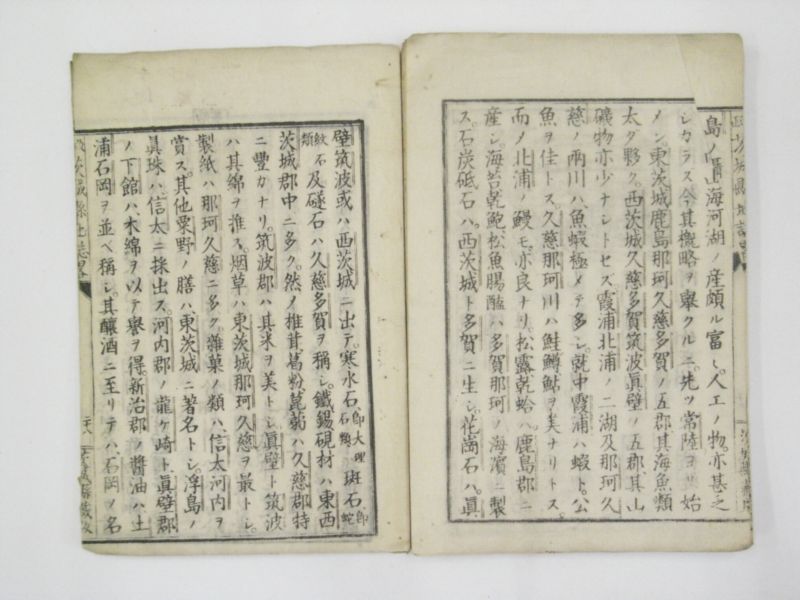 島ノ海河湖ノ産頗ル富ミ人工ノ物亦甚之
シカラス今其概略ヲ擧クルニ先ツ常陸ヨリ始
メン東茨城鹿島那珂久慈多賀ノ五郡其海魚類
太タ夥ク西茨城久慈多賀筑波眞壁ノ五郡其山
礦物亦少ナシトセズ霞浦北浦ノ二湖及那珂久
慈ノ兩川ハ魚蝦極メテ多シ就中霞浦ハ蝦ト公
魚ヲ佳トス久慈那珂川ハ鮭鱒鮎ヲ美ナリトス
而ノ北浦ノ鰻モ亦良ナリ松露乾蛤ハ鹿島郡ニ
産シ海苔乾鮑松魚腸醢ハ多賀那珂ノ海濱ニ製
ス石炭砥石ハ西茨城ト多賀ニ生シ花崗石ハ眞
壁筑波或ハ西茨城ニ出テ寒水石即大理石鶏斑石即蛇
紋石類及燧石ハ久慈多賀ヲ稱シ鐵錫硯材ハ東西
茨城郡中ニ多ク然ノ椎茸葛粉蒟蒻ハ久慈郡特
ニ豐カナリ筑波郡ハ其米ヲ美トシ眞壁ト筑波
ハ其綿ヲ推ス烟草ハ東茨城那珂久慈ヲ最トシ
製紙ハ那珂久慈ニ多ク雜菓ノ類ハ信太河内ヲ
賞ス其他粟野ノ膳ハ東茨城ニ著名トシ浮島ノ
眞珠ハ信太ニ採出ス河内郡ノ龍ヶ崎ト眞壁郡
ノ下館ハ木綿ヲ以テ譽ヲ得新治郡ノ醬油ハ土
浦石岡ヲ並ベ稱シ其釀酒ニ至リテハ石岡ノ名